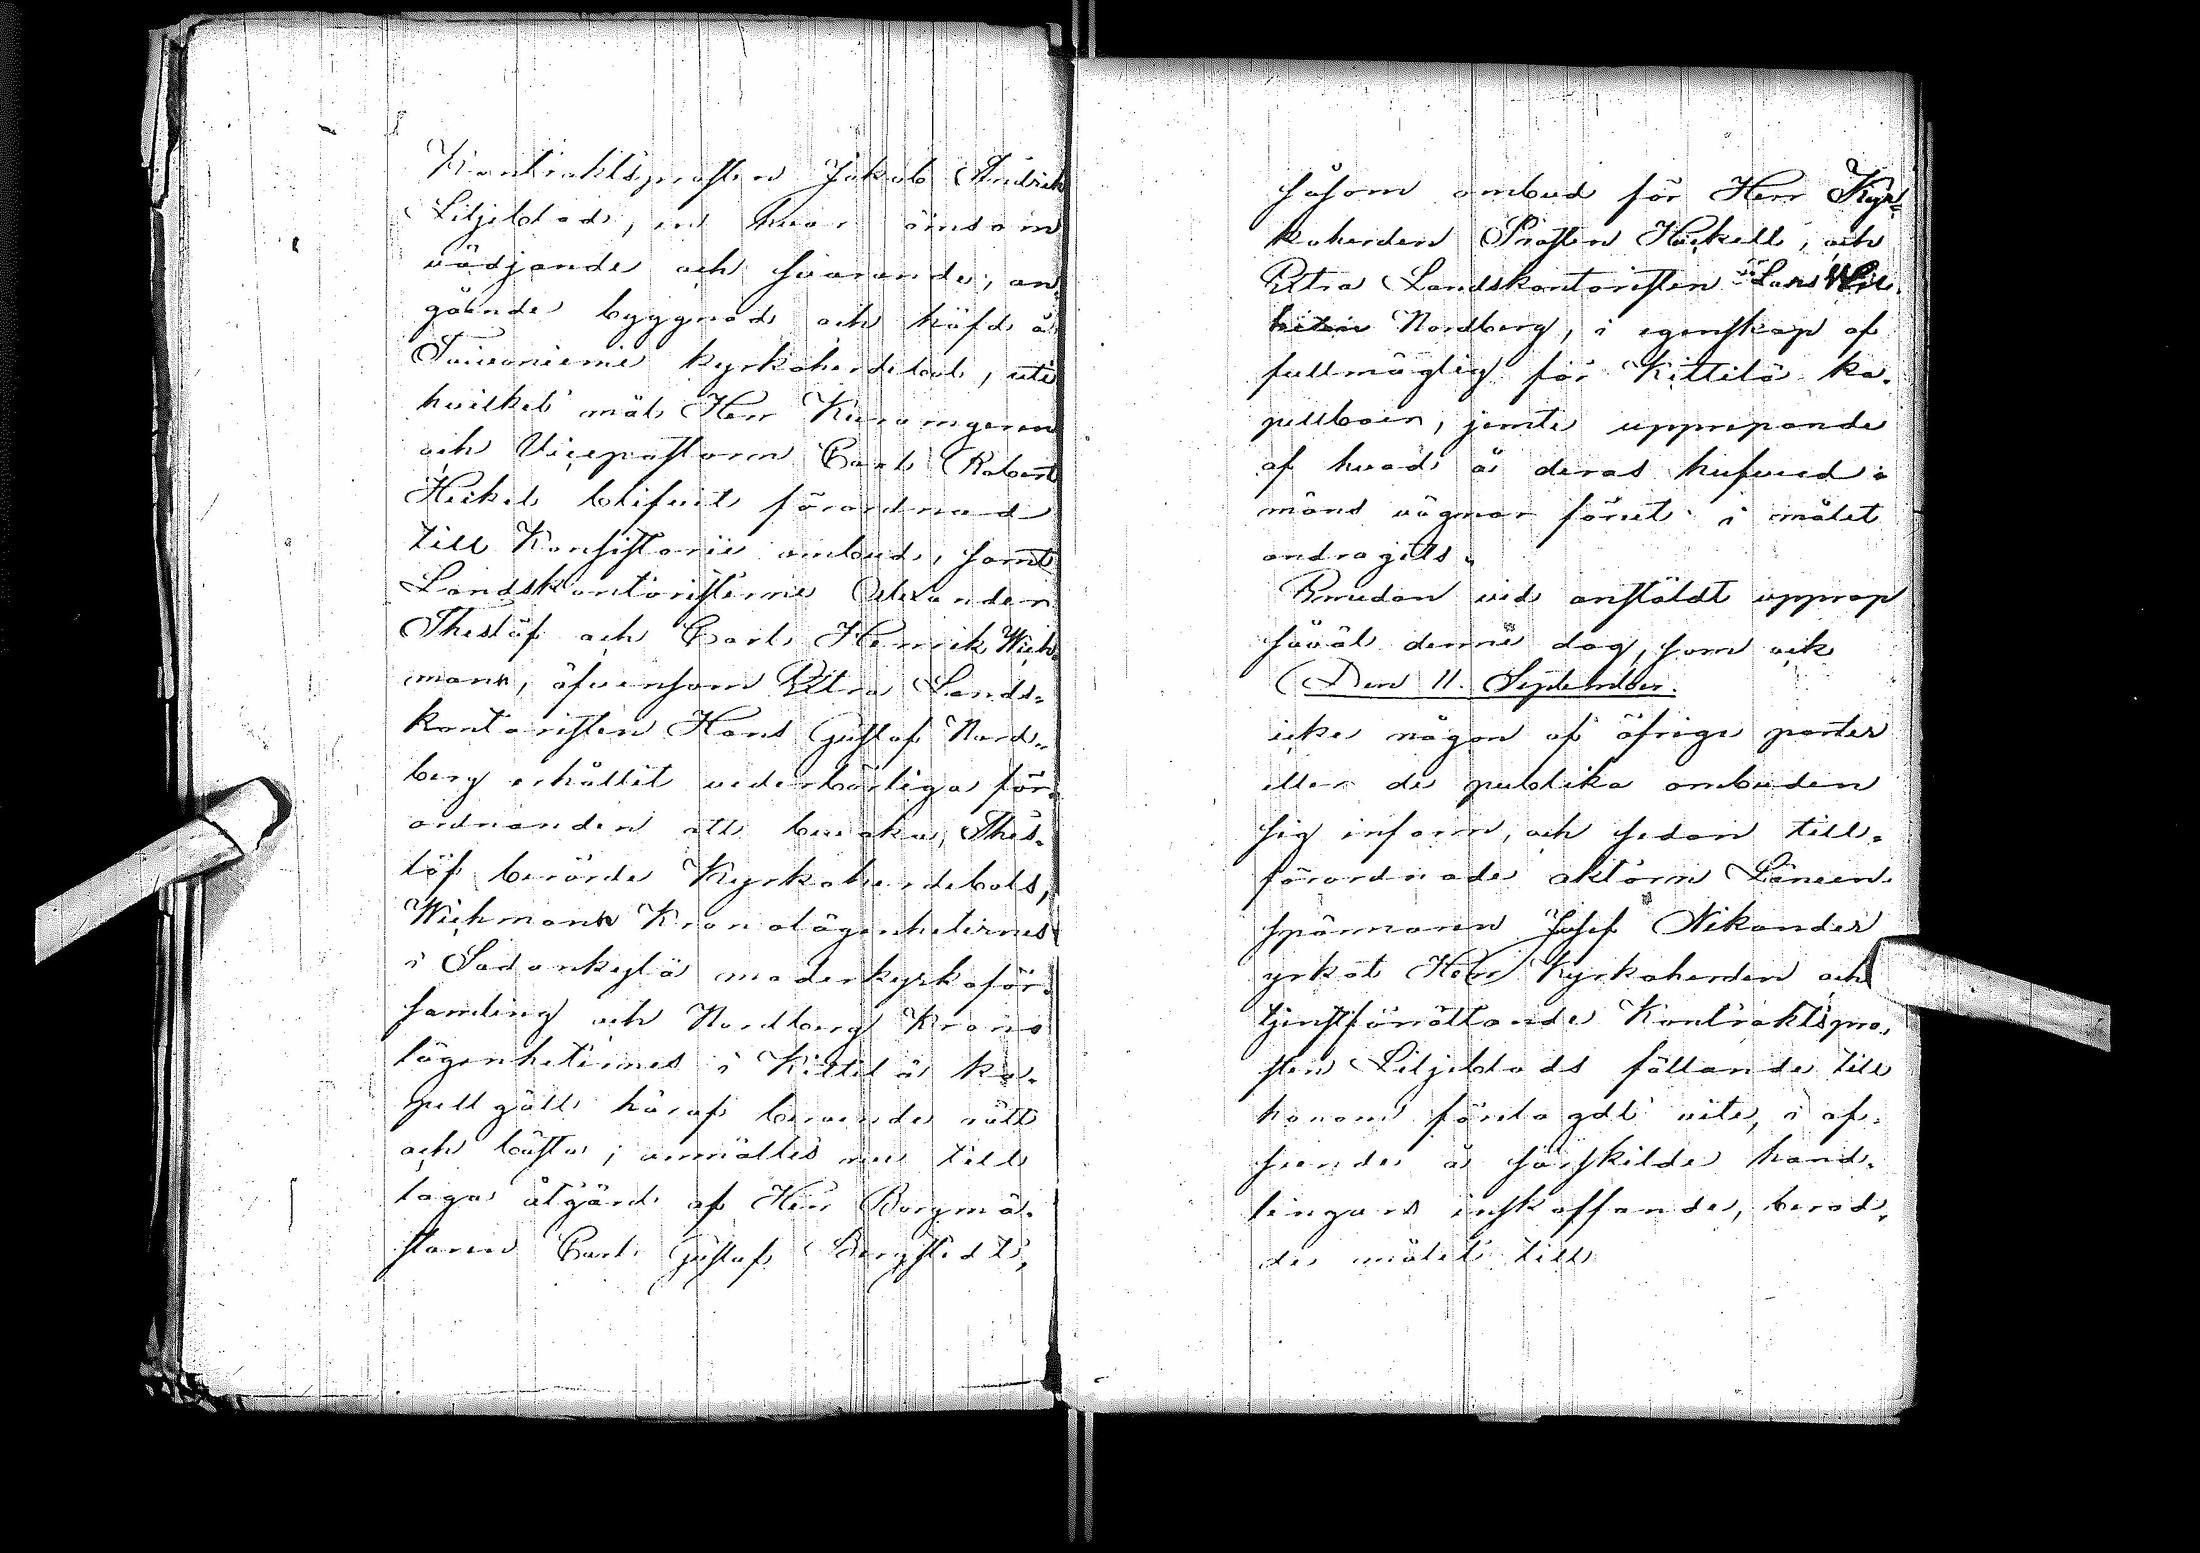 Kontraktsprosten Jakob Andrich
Liljeblad, en hvar ömsom
vädjande och svarande, an-
gående byggnad och häfd å
Taivaniemi kyrkoherdebol, uti
hvilket mål Herr Kuromgeren
och Vicepastorn Carl Robert
Heikel blifvit förordnad
till Konsistorii ombud, samt
Landskontoristerne Alexander
Theslöf och Carl Henrik Wich-
mann, äfvensom Extra Lands-
kontoristen Hans Gustaf Nord-
berg erhållit vederbörliga för-
ordnanden att bevaka, Thes-
löf berörde Kyrkoherdebols,
Wichmann Kronolägenheternes
i Sodankylä moderkyrkoför-
samling och Nordberg Krono
lägenheternes i Kittilä ka-
pellgäll häraf beroende rätt
och bästa; anmältes nu till
laga åtgärd af Herr Borgmä-
staren Carl Gustaf Bergstedt,
såsom ombud för Herr Kyr-
koherden Prosten Heikell, och
Extra Landskontoristen Lars Wil-
Nordberg, i egenskap af
fullmägtig för Kittilä ka-
pellboer, jemte upprepande
af hvad å deras hufvud-
mäns vägnar förut i målet
andragits.
Emedan vid anstäldt upprop
såväl denne dag, som ock
Den 11. September.
icke någon af öfrige parter
eller de publika ombuden
sig infann, och sedan till-
förordnade aktorn Länsen-
spånnaren Josef Nikander
yrkat Herr Kyrkoherden och
tjenstförrättande Kontraktspro-
sten Liljeblads fällande till
honom förelagdt vite, i af-
seende å särskilde hand-
lingars inskaffande, berod-
de målet till